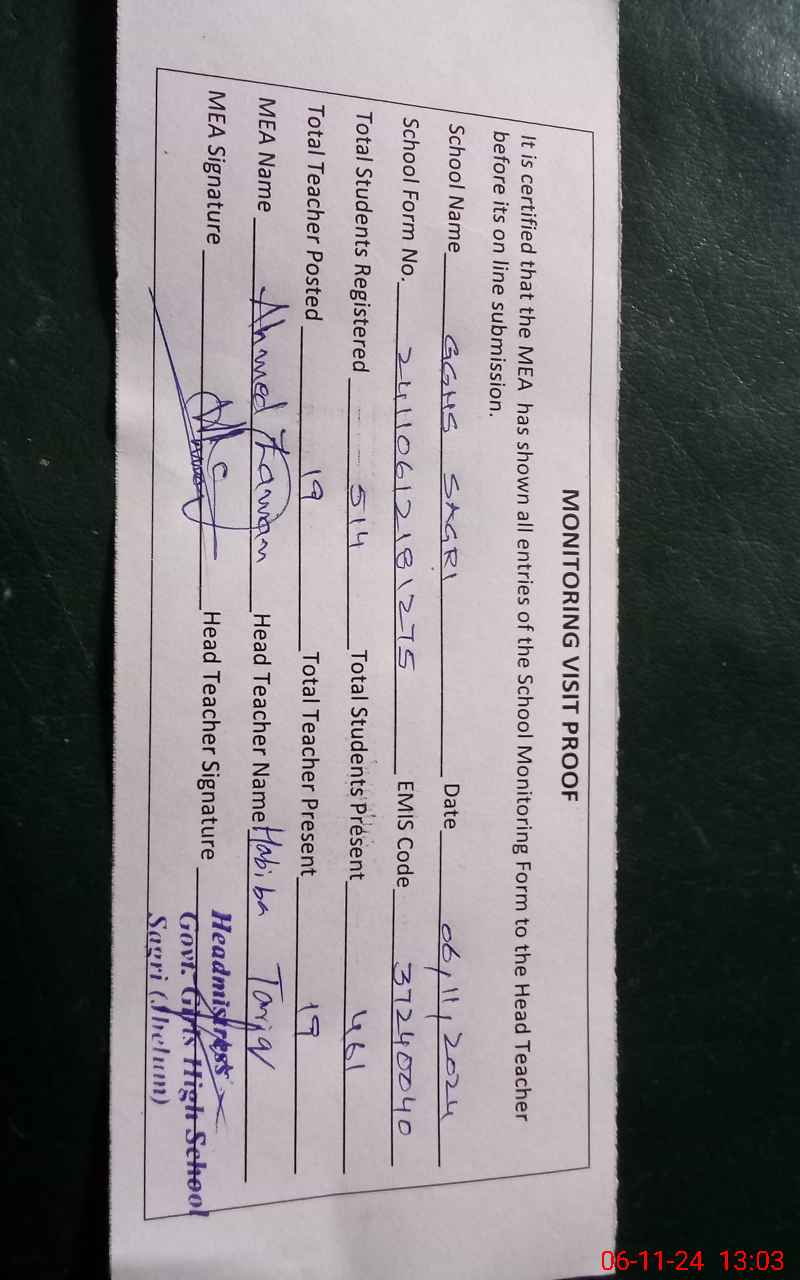 MONITORING VISIT PROOF
It is certified that the MEA has shown all entries of the School Monitoring Form to the Head Teacher
before its on line submission.
School Name GGHS SAGRI Date 06/11/2024
School Form No. 24110612181275 EMIS Code 37240040
Total Students Registered 514 Total Students Present 461
Total Teacher Posted 19 Total Teacher Present 19
MEA Name Ahmed Zawan Head Teacher Name Habiba Tariq
MEA Signature Head Teacher Signature
Headmistress
Govt. Girls High School
Sagri (Jhelum)
06-11-24 13:03